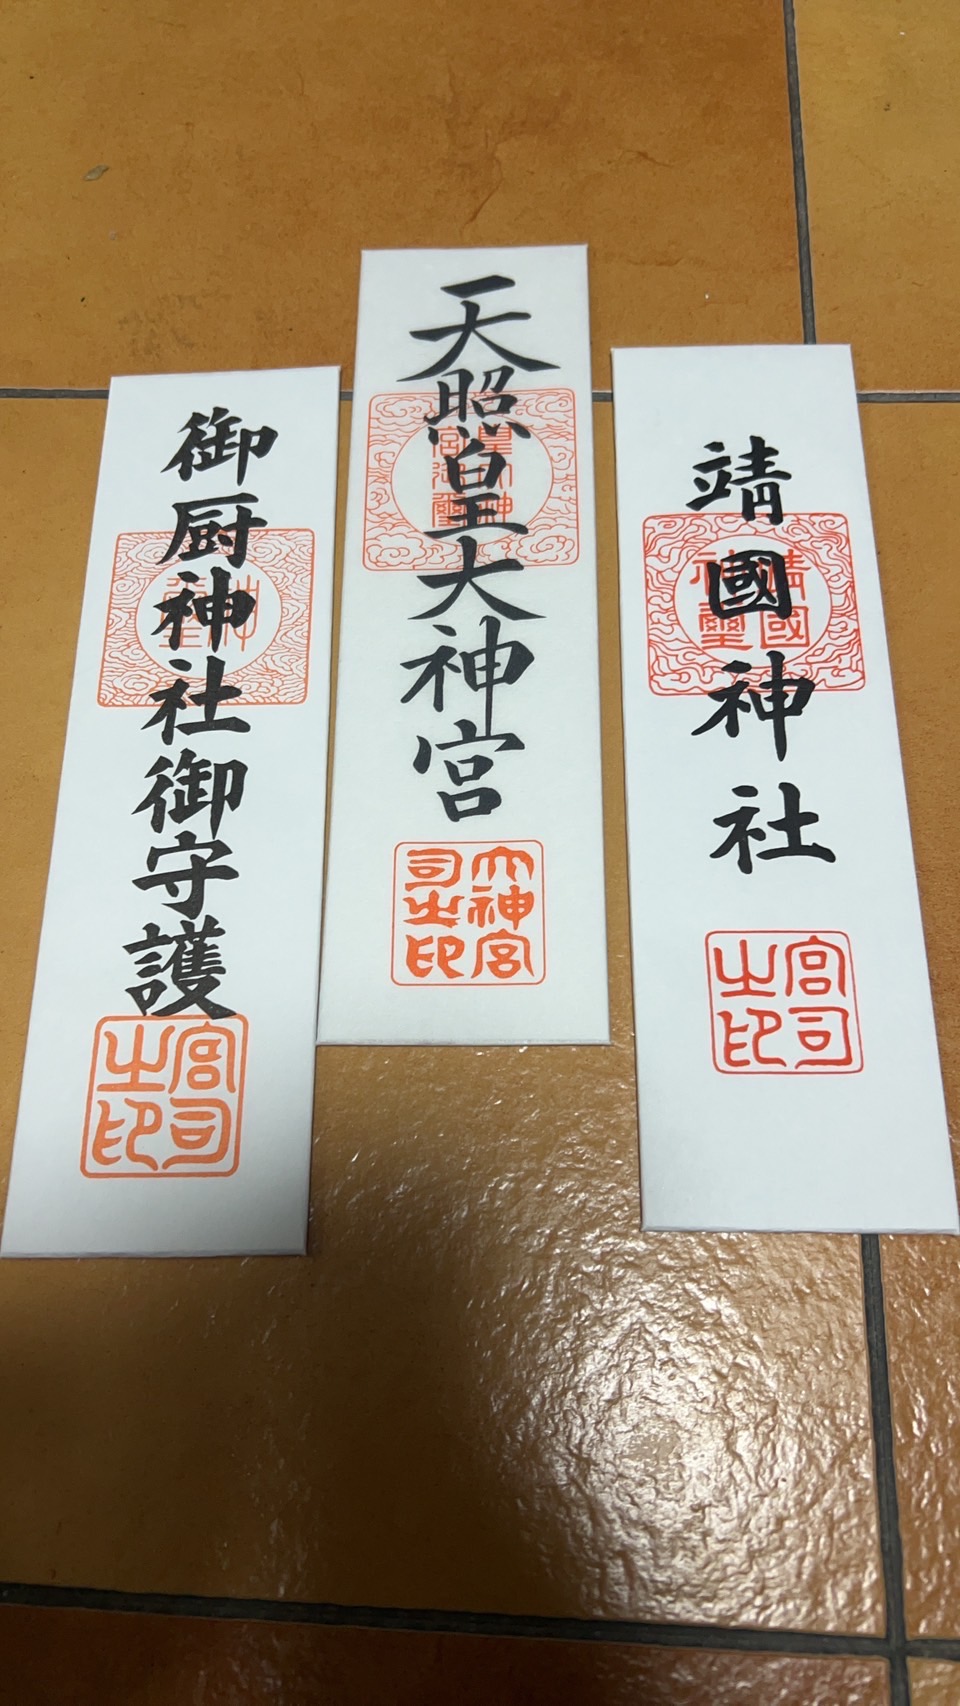 靖國神社
靖國
神璽
宮司
之印
天照皇大神宮
皇大神
宮御璽
大神宮
司之印
御厨神社御守護
宮司
之印